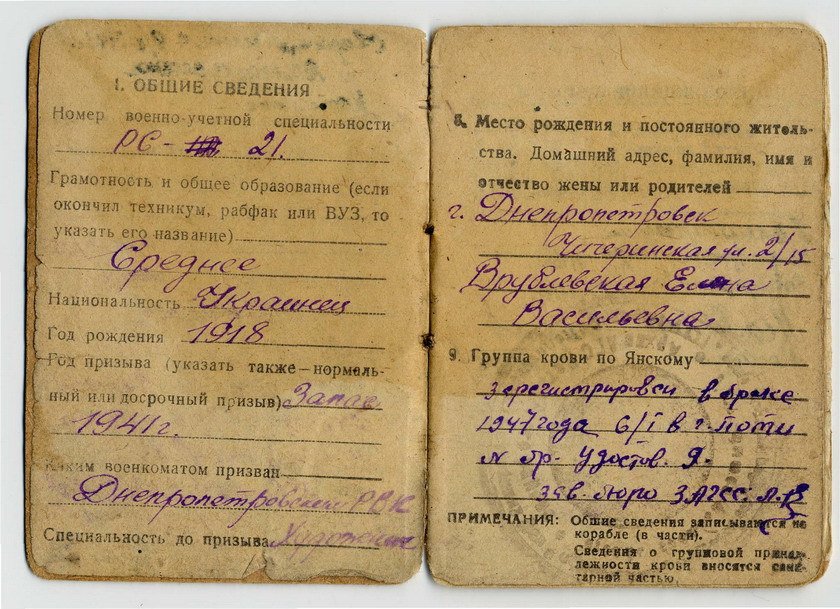 1. ОБЩИЕ СВЕДЕНИЯ
Номер военно-учетной специальности
РС- 21.
Грамотность и общее образование (если
окончил техникум, рабфак или ВУЗ, то
указать его название)
Среднее
Национальность Украинец
Год рождения 1918
Год призыва (указать также—нормаль-
ный или досрочный призыв) Запас
1941 г.
Каким военкоматом призван
Днепропетровский РВК
Специальность до призыва Художник
8. Место рождения и постоянного житель-
ства. Домашний адрес, фамилия, имя и
отчество жены или родителей
г. Днепропетровск
Чичеринская ул. 2/15
Врублевская Елена
Васильевна
9. Группа крови по Янскому
зарегистрировси в браке
1947 года 6/I в г. Поти
зав. бюро ЗАГСС:
ПРИМЕЧАНИЯ: Общие сведения записываются на
корабле (в части).
Сведения о групповой принад-
лежности крови вносятся сани-
тарной частью.